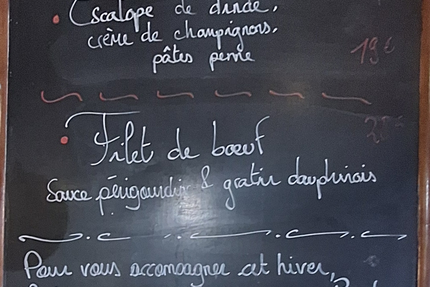 Escalope de dinde,
crème de champignons,
pâtes penne
19€
Filet de bœuf
Sauce périgourdine & gratin dauphinois
Pour vous accompagner cet hiver,